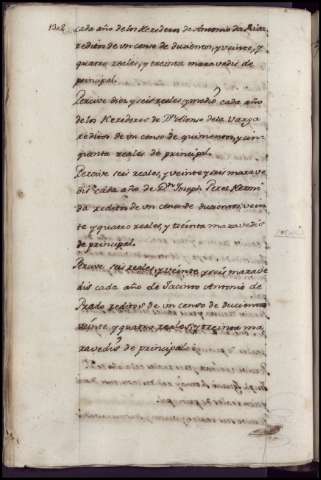 cada año de los Herederos de Antonio de
reditos de vn censo de duzientos, y veinte, y
quatro reales, y treinta marauedis de
principal.
Perciue diez y seis reales y medio cada año
de los Herederos de Dn. Alonso de la Varga
reditos de vn censo de quinientos, y cin
quenta reales de principal.
Perciue seis reales, y veinte y dos maraue
dis cada año de Dn. Joseph Perez
da reditos de vn censo de duzientos, vein
te y quatro reales, y treinta marauedis
de principal.
Perciue seis reales, y treinta y seis maraue
dis cada año de Jacinto Antonio de
Prado reditos de vn censo de duzientos
veinte y quatro reales, y treinta ma
rauedis de principal